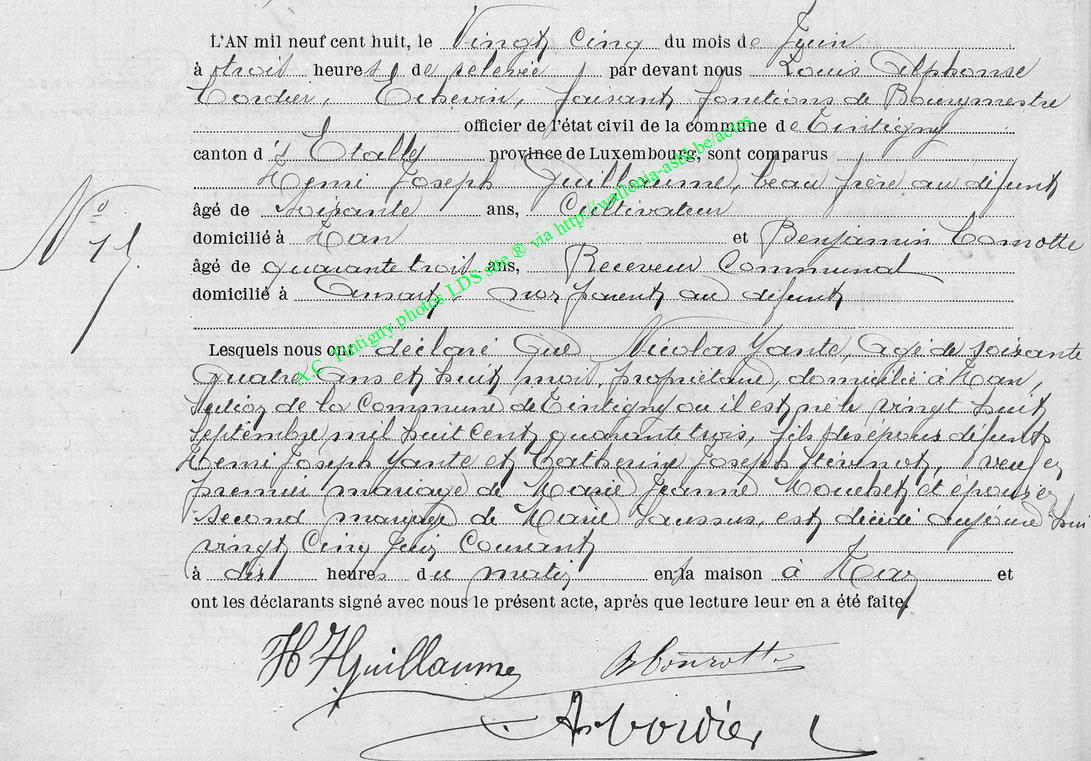 L'AN mil neuf cent huit, le Vingt Cinq du mois de Juin
à trois heures de relevée par devant nous Louis Alphonse
Cordier, Echevin, faisant fonctions de Bourgmestre
officier de l'état civil de la commune de Tintigny
canton d'Etalle province de Luxembourg, sont comparus
Henri Joseph Guillaume, beau frère au défunt
N° 15
âgé de soixante ans, Cultivateur
domicilié à Han et Benjamin Comotte
âgé de quarante trois ans, Receveur Communal
domicilié à Ansart, non parent au défunt
A.C. Tintigny photos LDS site ® via http://wallonia-asbl.be/actes
Lesquels nous ont déclaré que Nicolas Yante, agé de soixante
quatre ans et huit mois, propriétaire, domicilié à Han,
section de la Commune de Tintigny ou il est né le vingt huit
Septembre mil huit cent quarante trois, fils des époux défunts
Henri Joseph Yante et Catherine Joseph Stévenot, veuf en
premier mariage de Marie Jeanne Mouchet et époux en
second mariage de Marie Saussus, est décédé aujourd'hui
vingt Cinq Juin Courant
à dix heures du matin en la maison à Han et
ont les déclarants signé avec nous le présent acte, après que lecture leur en a été faite,
H J Guillaume
A Cordier